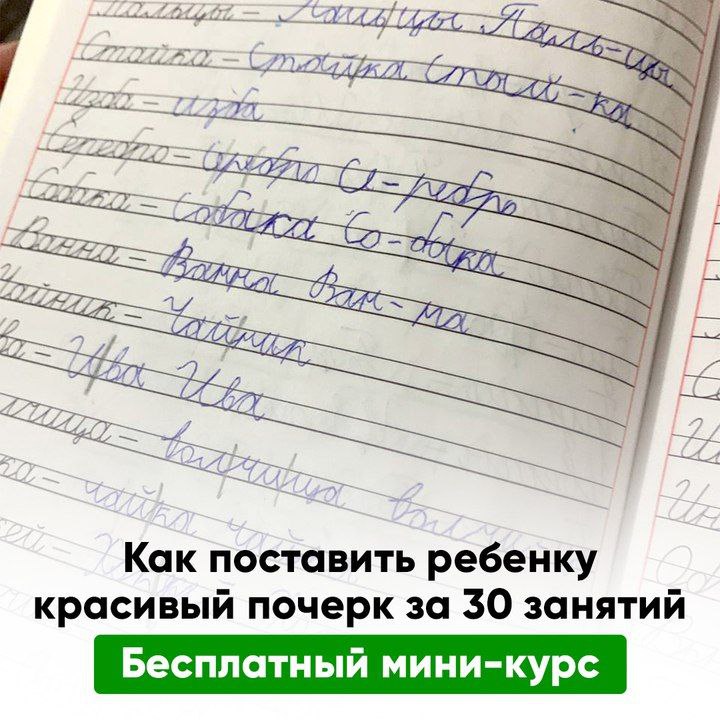 Пальцы – Пальцы Паль-цы
Стайка – Стайка Стый-ка
Изба – изба
Серебро – Серебро Се-ребро
Собака – Собака Со-бака
Ванна – Ванна Ван-на
Чайник – Чайник
ва – Ива Ива
лчица – волчица волчи
ка – чайка чай
кей –
Как поставить ребенку
красивый почерк за 30 занятий
Бесплатный мини-курс